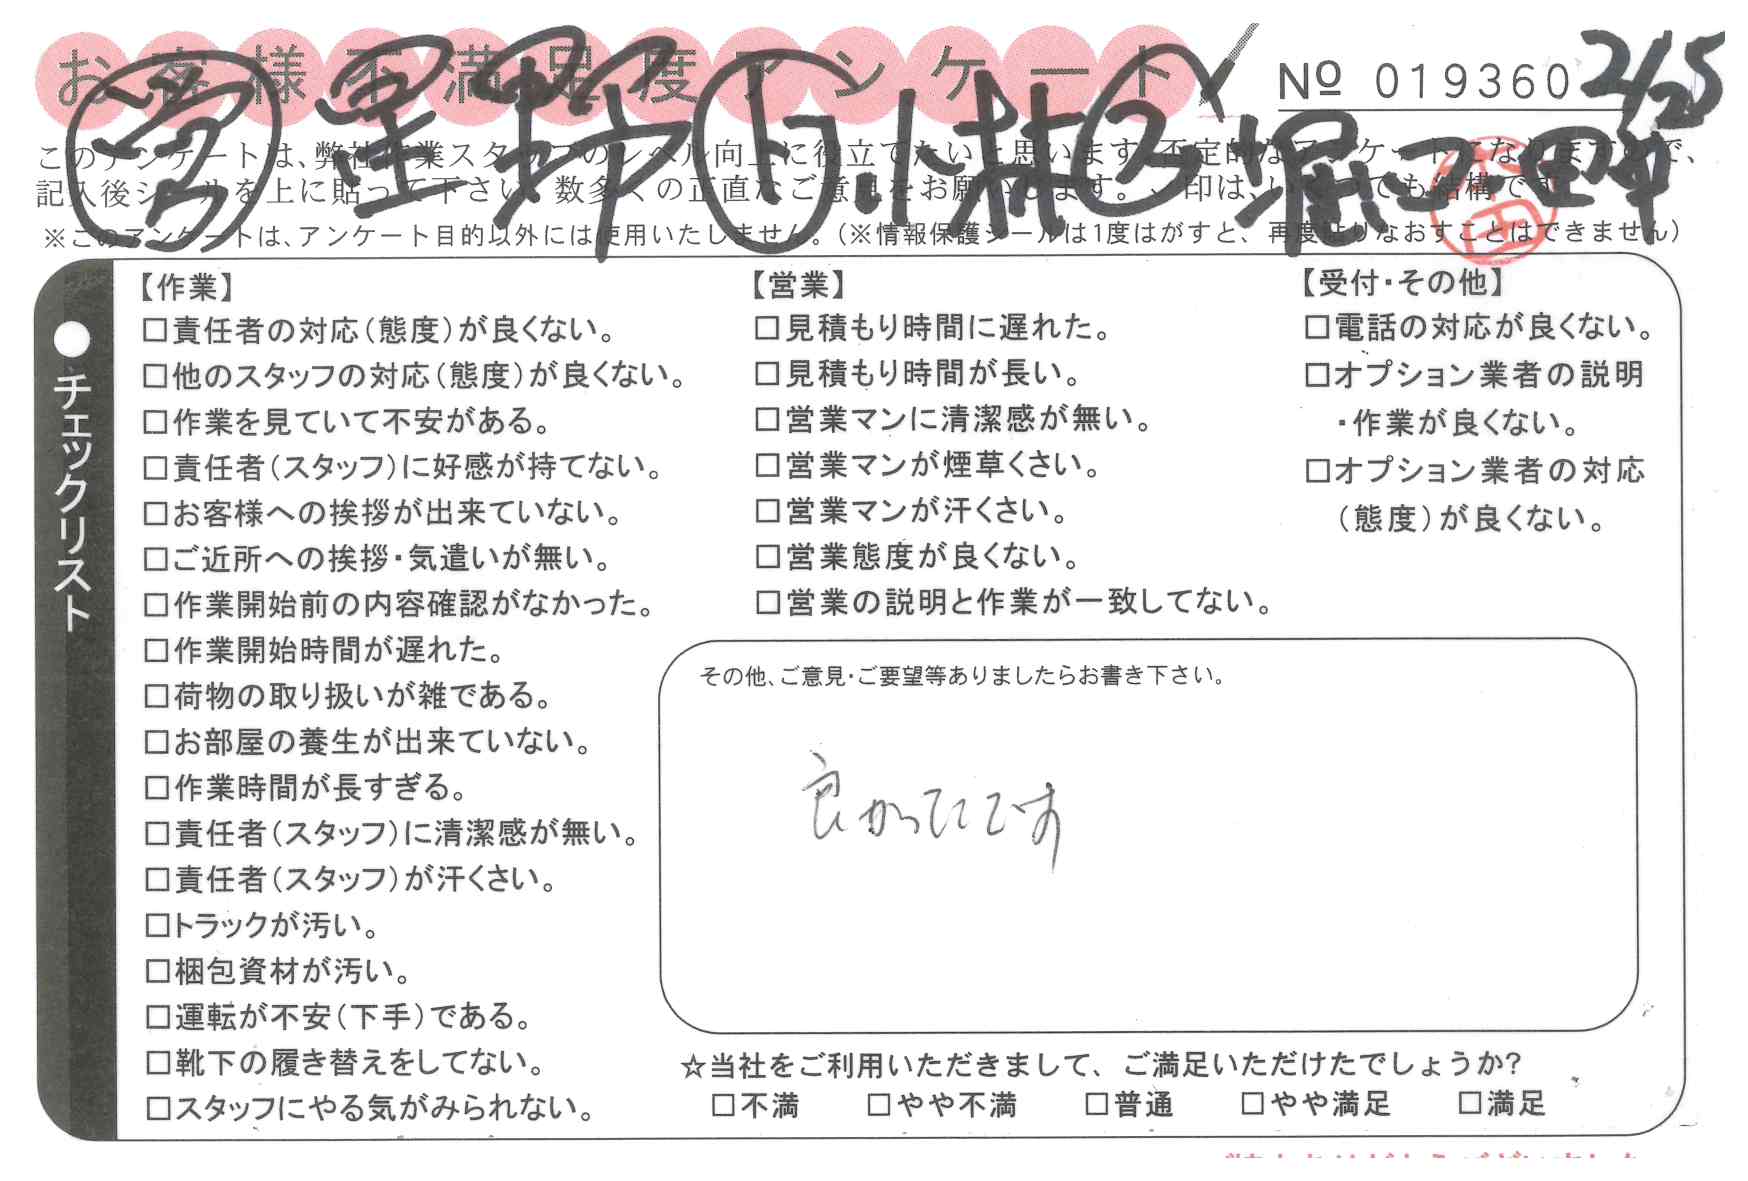 お客様不満足度アンケート
№ 019360 2/25
営 星野 ト 小林 2 堀江
このアンケートは、弊社作業スタッフのレベル向上に役立てたいと思います。否定的なアンケートになりますので、
記入後シールを上に貼って下さい。数多くの正直なご意見をお願いします。✓印は、いくつでも結構です。
※このアンケートは、アンケート目的以外には使用いたしません。(※情報保護シールは1度はがすと、再度貼りなおすことはできません)
●チェックリスト
【作業】
□責任者の対応(態度)が良くない。
□他のスタッフの対応(態度)が良くない。
□作業を見ていて不安がある。
□責任者(スタッフ)に好感が持てない。
□お客様への挨拶が出来ていない。
□ご近所への挨拶・気遣いが無い。
□作業開始前の内容確認がなかった。
□作業開始時間が遅れた。
□荷物の取り扱いが雑である。
□お部屋の養生が出来ていない。
□作業時間が長すぎる。
□責任者(スタッフ)に清潔感が無い。
□責任者(スタッフ)が汗くさい。
□トラックが汚い。
□梱包資材が汚い。
□運転が不安(下手)である。
□靴下の履き替えをしてない。
□スタッフにやる気がみられない。
【営業】
□見積もり時間に遅れた。
□見積もり時間が長い。
□営業マンに清潔感が無い。
□営業マンが煙草くさい。
□営業マンが汗くさい。
□営業態度が良くない。
□営業の説明と作業が一致してない。
【受付・その他】
□電話の対応が良くない。
□オプション業者の説明
・作業が良くない。
□オプション業者の対応
(態度)が良くない。
その他、ご意見・ご要望等ありましたらお書き下さい。
良かったです
☆当社をご利用いただきまして、ご満足いただけたでしょうか?
□不満 □やや不満 □普通 □やや満足 □満足